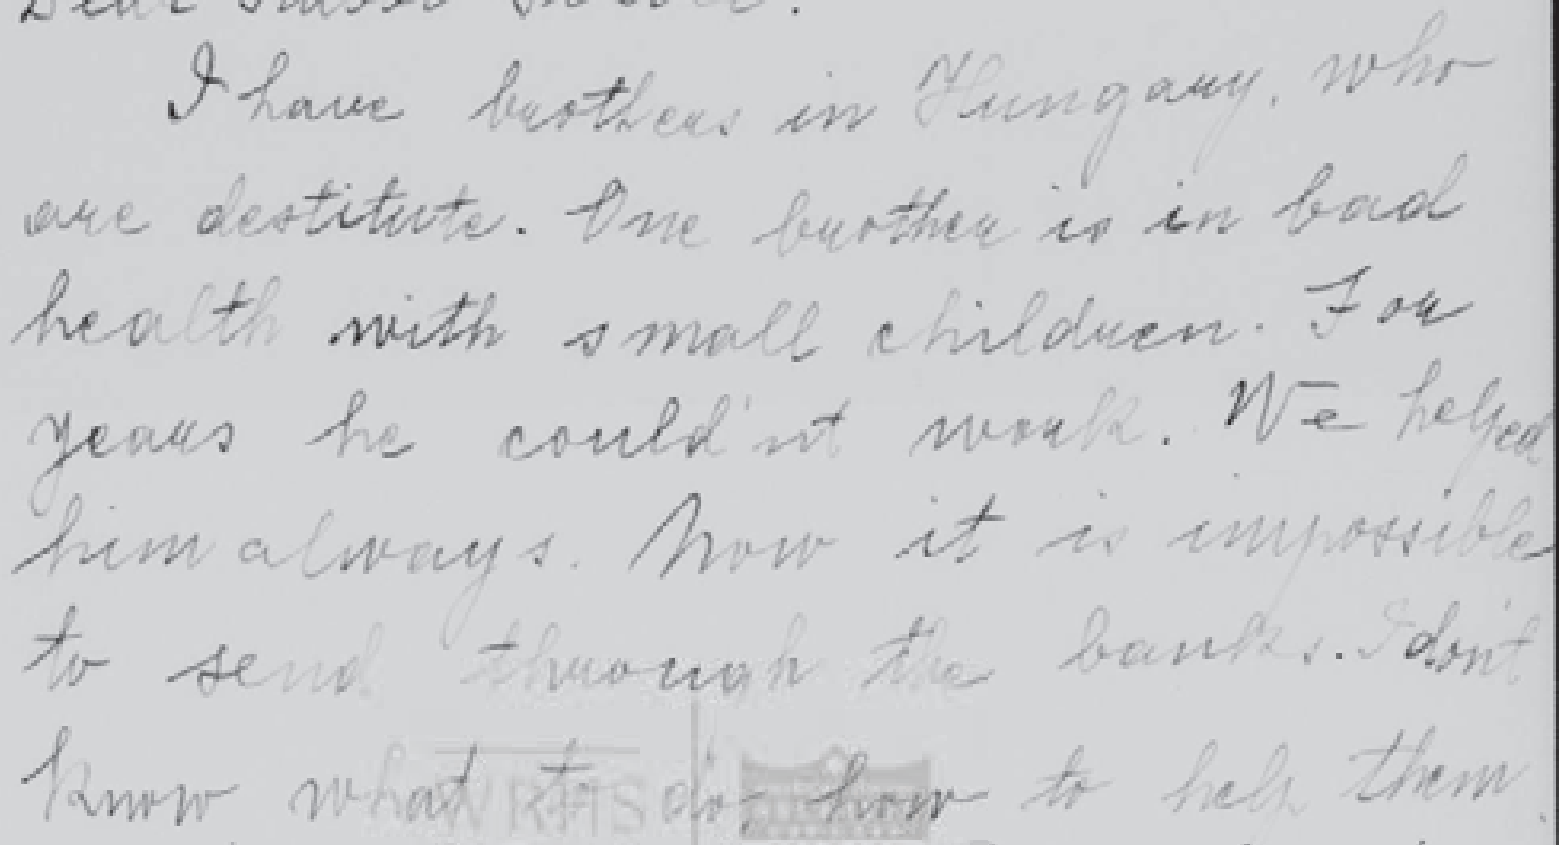 Dear
I have brothers in Hungary, who
are destitute. One brother is in bad
health with small children. For
years he could'nt work. We helped
him always. Now it is impossible
to send through the banks. I don't
know what to do, how to help them.
WRHS